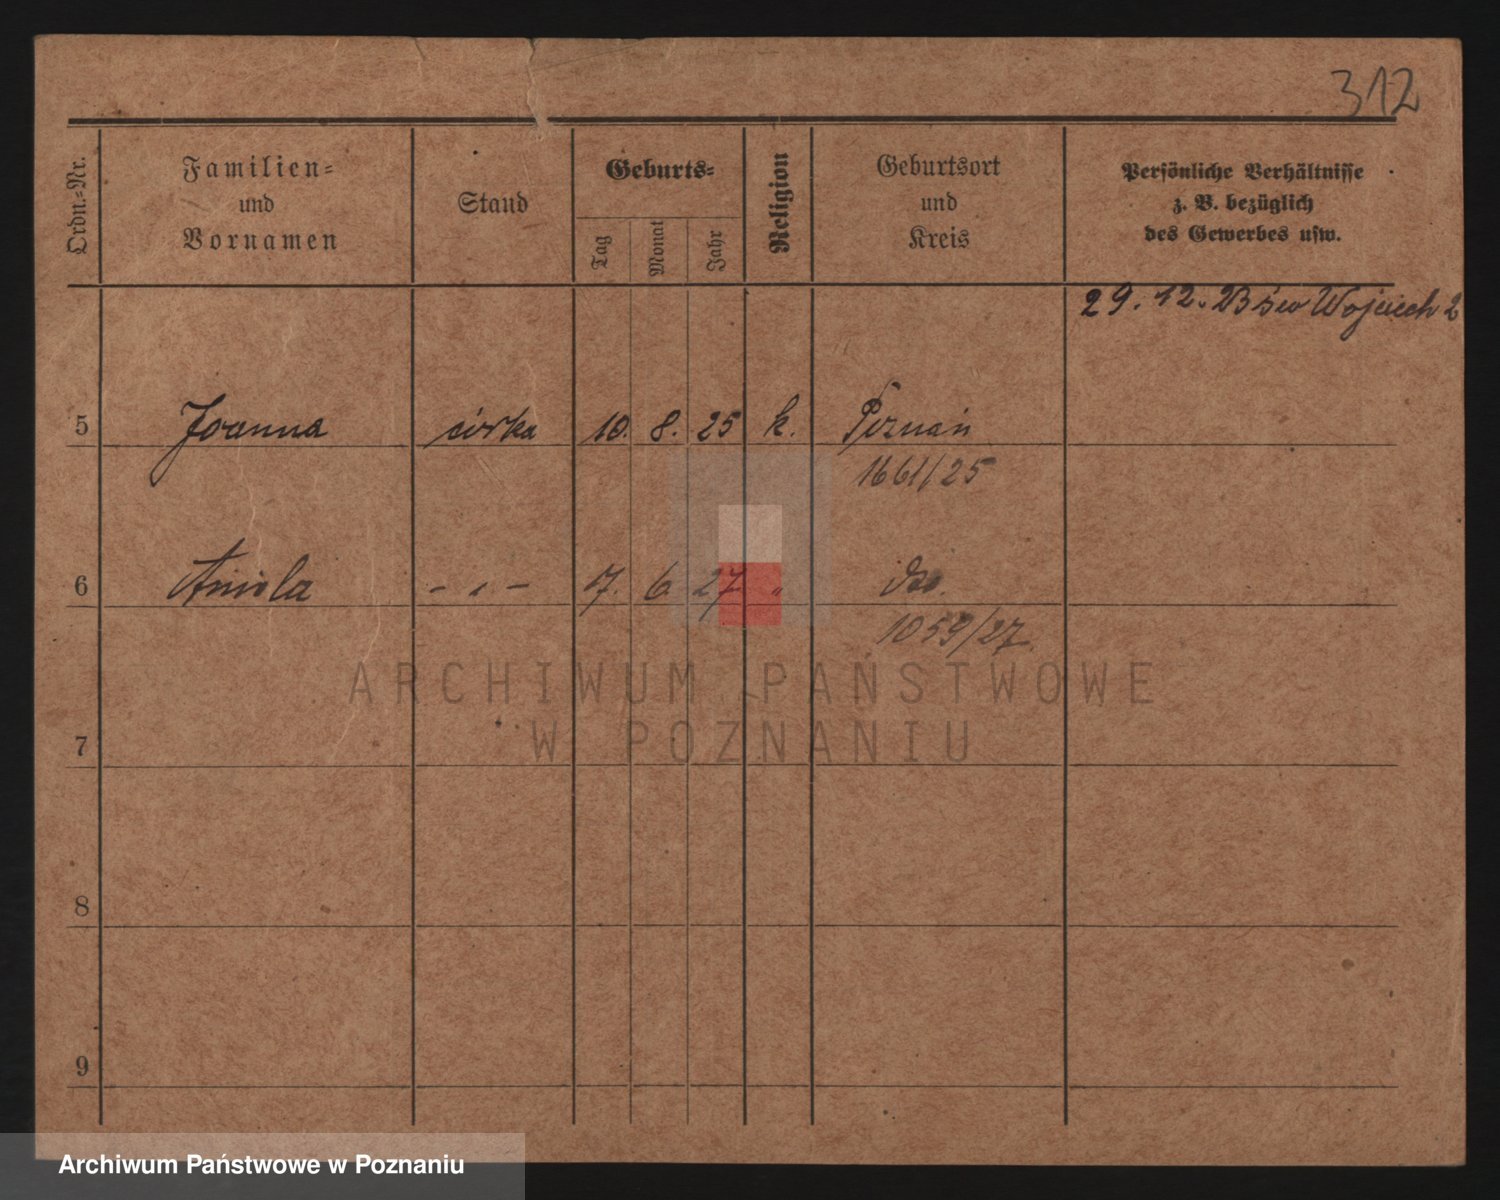 312
Ordn.-Nr.
Familien-
und
Vornamen
Stand
Geburts-
Tag
Monat
Jahr
Religion
Geburtsort
und
Kreis
Persönliche Verhältnisse
z. B. bezüglich
des Gewerbes usw.
29. 12. 23 św Wojciech 2
5 Joanna córka 10. 8. 25 k. Poznań
1661/25
6 Aniela - „ - 7. 6. 27 „ dto.
1059/27.
ARCHIWUM PAŃSTWOWE
W POZNANIU
7
8
9
Archiwum Państwowe w Poznaniu